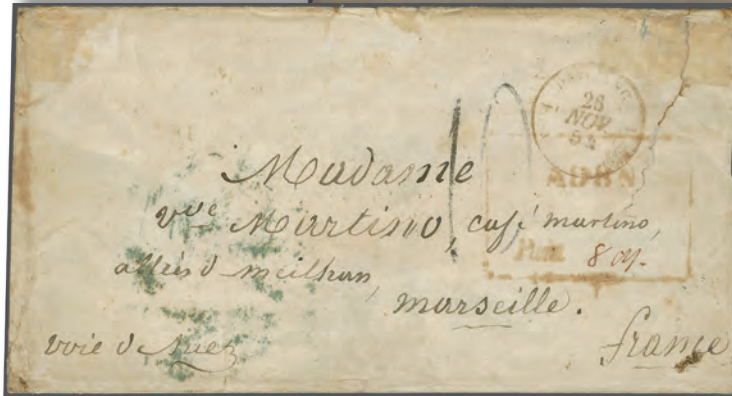 26
NOV
52
ADEN
Paid 8 oy.
Madame
vve Martino, café martino,
allées d meilhan,
marseille.
voie d Suez
france